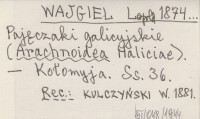 WAJGIEL L. 1874...
Pajęczaki galicyjskie
(Arachnoidea Haliciae).
— Kołomyja. Ss. 36.
Rec.: KULCZYŃSKI W. 1881.